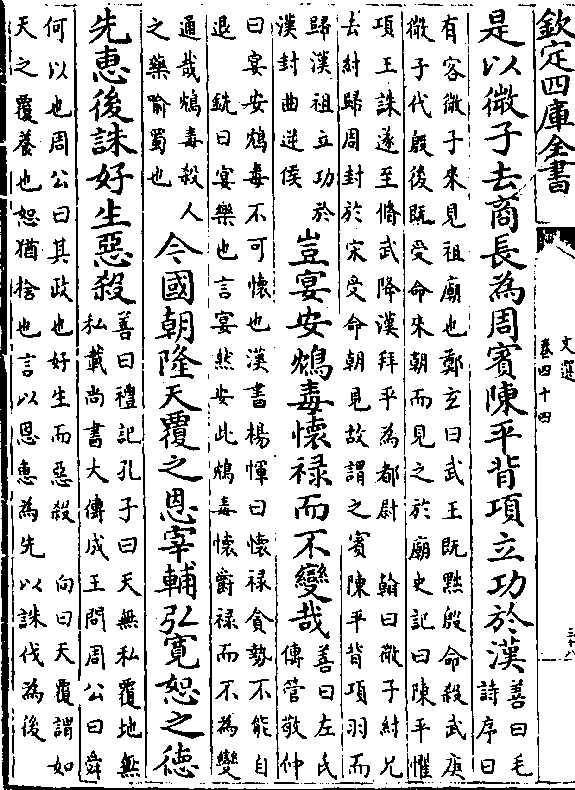 欽定四庫全書
文選
卷四十四
是以微子去商長為周賓陳平背項立功於漢
善曰毛
詩序曰
有客微子來見祖廟也鄭玄曰武王既黜殷命殺武庚
微子代殷後既受命來朝而見之於廟史記曰陳平懼
項王誅遂至脩武降漢拜平為都尉 翰曰微子紂兄
去紂歸周封於宋受命朝見故謂之賓陳平背項羽而
歸漢祖立功於
漢封曲逆侯
豈宴安鴆毒懷禄而不變哉
善曰左氏
傳管敬仲
曰宴安鴆毒不可懷也漢書楊惲曰懷禄貪勢不能自
退 銑曰宴樂也言宴然安此鴆毒懷爵禄而不為變
通哉鴆毒殺人
之藥喻蜀也
今國朝隆天覆之恩宰輔弘寛恕之徳
先恵後誅好生惡殺
善曰禮記孔子曰天無私覆地無
私載尚書大傳成王問周公曰舜
何以也周公曰其政也好生而惡殺 向曰天覆謂如
天之覆養也恕猶捨也言以恩恵為先以誅伐為後